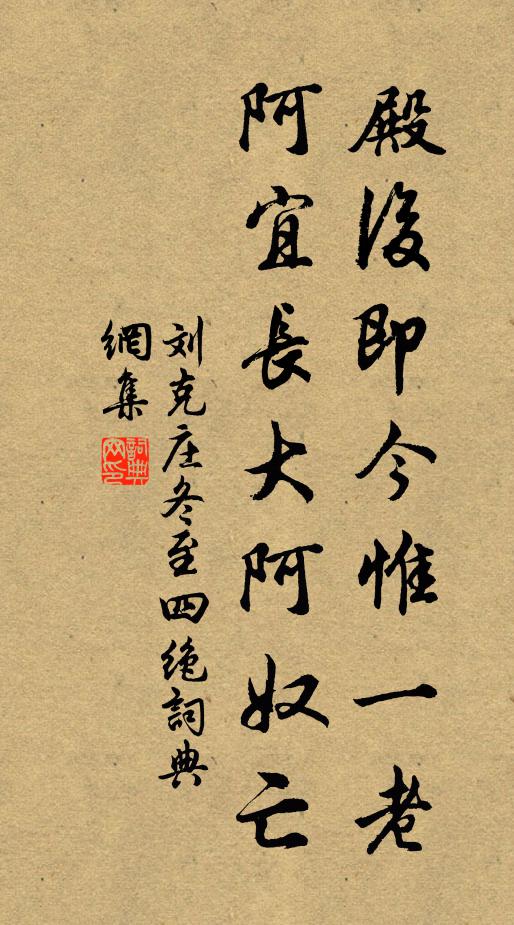 殿後即今惟一老
阿宜長大阿奴亡
刘克庄冬至四绝詞典
網集
詞典網印